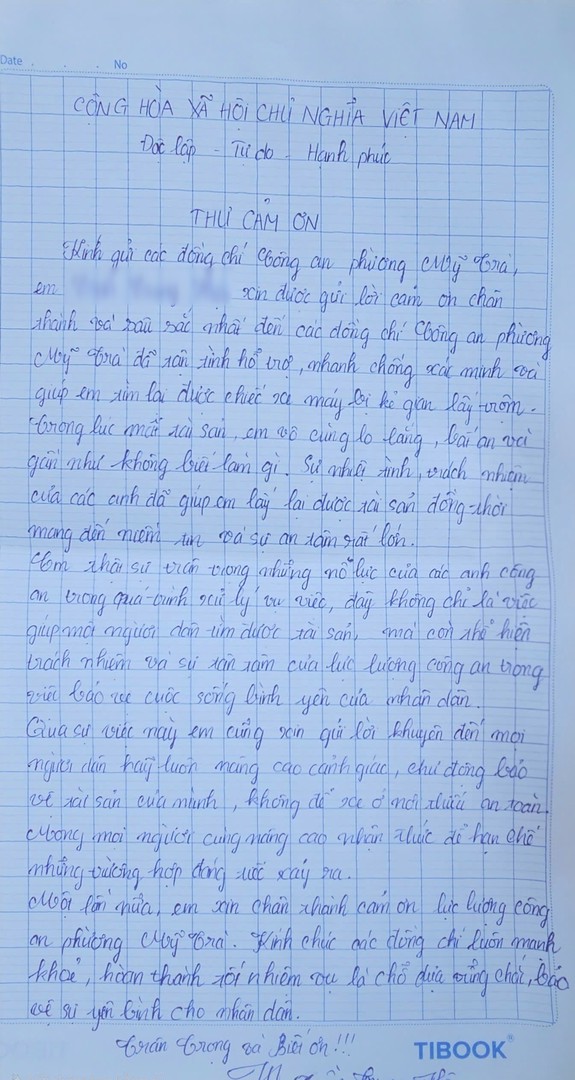 Date . . . No
CỘNG HÒA XÃ HỘI CHỦ NGHĨA VIỆT NAM
Độc lập - Tự do - Hạnh phúc
THƯ CẢM ƠN
Kính gửi các đồng chí Công an phường Mỹ Trà,
em xin được gửi lời cảm ơn chân
thành và sâu sắc nhất đến các đồng chí Công an phường
Mỹ Trà đã tận tình hổ trợ, nhanh chống xác minh và
giúp em tìm lại được chiếc xe máy bị kẻ gian lấy trộm.
Trong lúc mất tài sản, em vô cùng lo lắng, bất an và
gần như không biết làm gì. Sự nhiệt tình, trách nhiệm
của các anh đã giúp em lấy lại được tài sản đồng thời
mang đến niềm tin và sự an tâm rất lớn.
Em thật sự trân trọng những nổ lực của các anh công
an trong quá trình xử lý vụ việc, đây không chỉ là việc
giúp một người dân tìm được tài sản, mà còn thể hiện
trách nhiệm và sự tận tâm của lực lượng công an trong
việc bảo vệ cuộc sống bình yên của nhân dân.
Qua sự việc này em cũng xin gửi lời khuyên đến mọi
người dân hãy luôn nâng cao cảnh giác, chủ động bảo
vệ tài sản của mình, không để xe ở nơi thiếu an toàn.
Mong mọi người cùng nâng cao nhận thức để hạn chế
những trường hợp đáng tiếc xảy ra.
Một lần nữa, em xin chân thành cảm ơn lực lượng công
an phường Mỹ Trà. Kính chúc các đồng chí luôn mạnh
khoẻ, hoàn thành tốt nhiệm vụ là chổ dựa vững chắc, bảo
vệ sự yên bình cho nhân dân.
Trân trọng và Biết ơn!!!
TIBOOK